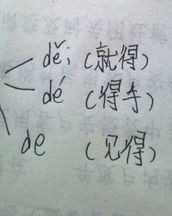 děi (就得)
dé (得手)
de (见得)